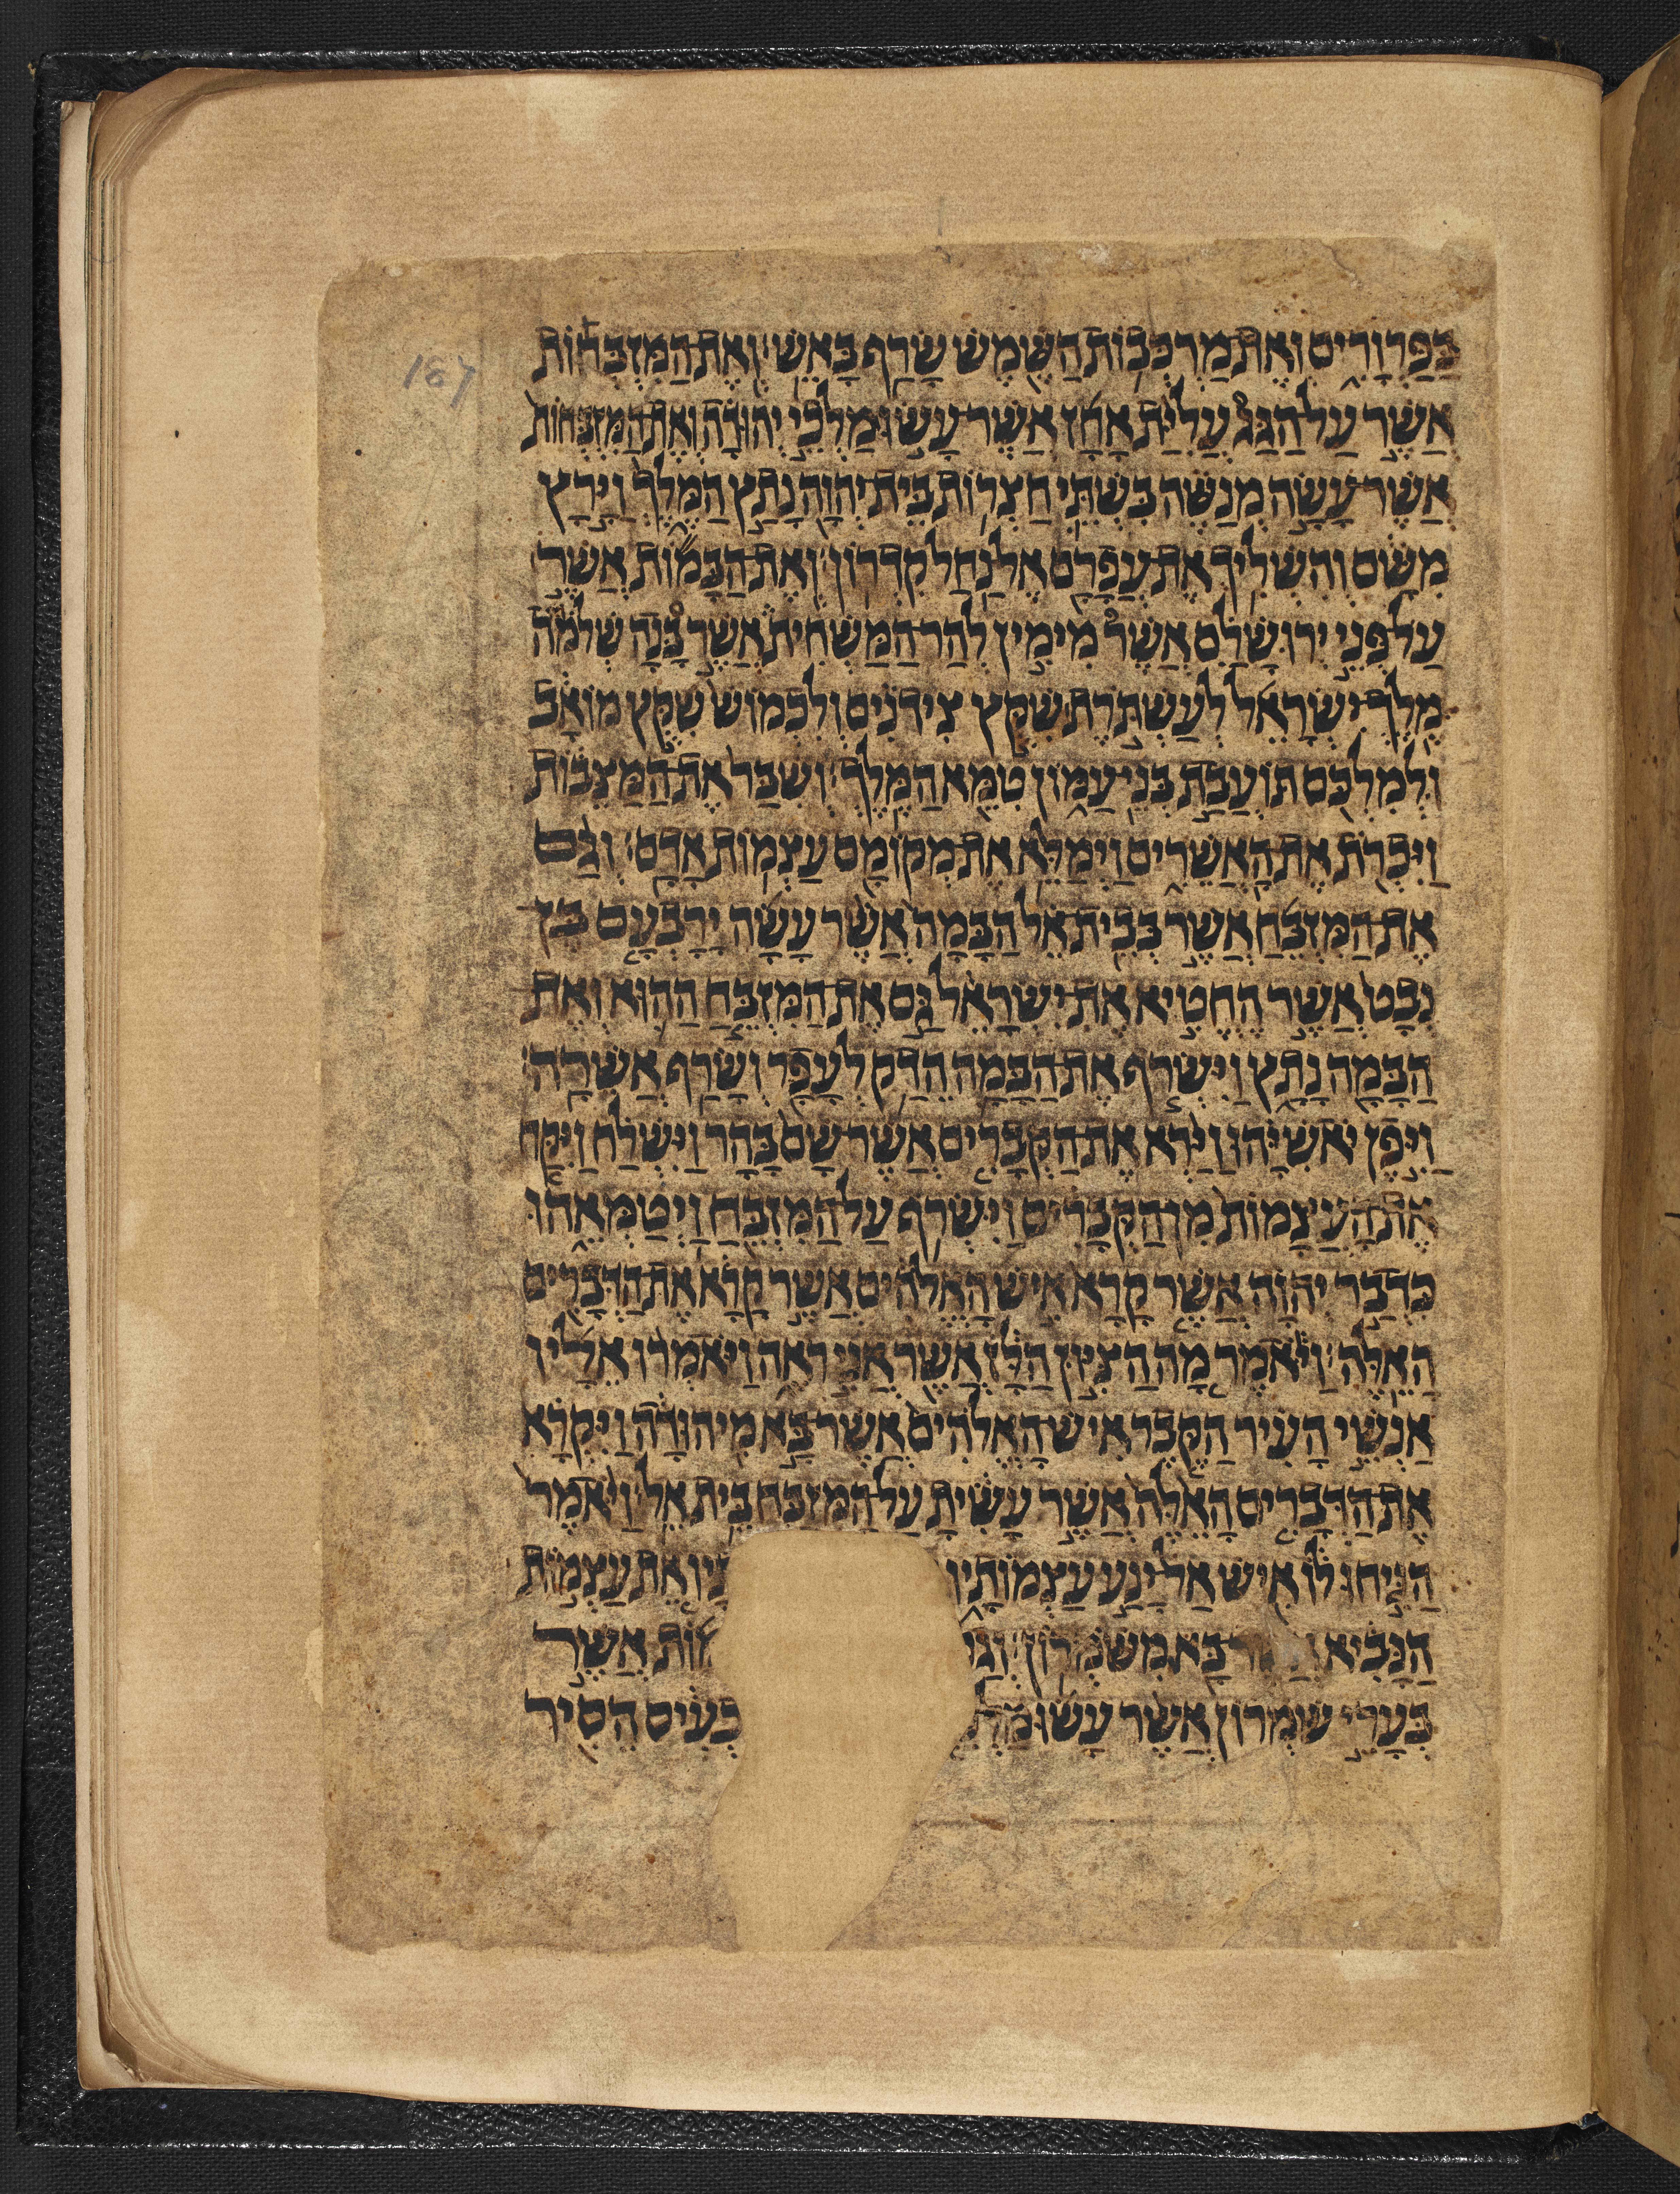 167
בַּפַּרְוָרִים וְאֶת מַרְכְּבוֹת הַשֶּׁמֶשׁ שָׂרַף בָּאֵשׁ׃ וְאֶת הַמִּזְבְּחוֹת
אֲשֶׁר עַל הַגָּג עֲלִיַּת אָחָז אֲשֶׁר עָשׂוּ מַלְכֵי יְהוּדָה וְאֶת הַמִּזְבְּחוֹת
אֲשֶׁר עָשָׂה מְנַשֶּׁה בִּשְׁתֵּי חַצְרוֹת בֵּית יְהוָה נָתַץ הַמֶּלֶךְ וַיָּרָץ
מִשָּׁם וְהִשְׁלִיךְ אֶת עֲפָרָם אֶל נַחַל קִדְרוֹן׃ וְאֶת הַבָּמוֹת אֲשֶׁר
עַל פְּנֵי יְרוּשָׁלַם אֲשֶׁר מִימִין לְהַר הַמַּשְׁחִית אֲשֶׁר בָּנָה שְׁלֹמֹה
מֶלֶךְ יִשְׂרָאֵל לְעַשְׁתֹּרֶת שִׁקֻּץ צִידֹנִים וְלִכְמוֹשׁ שִׁקֻּץ מוֹאָב
וּלְמִלְכֹּם תּוֹעֲבַת בְּנֵי עַמּוֹן טִמֵּא הַמֶּלֶךְ׃ וְשִׁבַּר אֶת הַמַּצֵּבוֹת
וַיִּכְרֹת אֶת הָאֲשֵׁרִים וַיְמַלֵּא אֶת מְקוֹמָם עַצְמוֹת אָדָם׃ וְגַם
אֶת הַמִּזְבֵּחַ אֲשֶׁר בְּבֵית אֵל הַבָּמָה אֲשֶׁר עָשָׂה יָרָבְעָם בֶּן
נְבָט אֲשֶׁר הֶחֱטִיא אֶת יִשְׂרָאֵל גַּם אֶת הַמִּזְבֵּחַ הַהוּא וְאֶת
הַבָּמָה נָתָץ וַיִּשְׂרֹף אֶת הַבָּמָה הֵדַק לְעָפָר וְשָׂרַף אֲשֵׁרָה׃
וַיִּפֶן יֹאשִׁיָּהוּ וַיַּרְא אֶת הַקְּבָרִים אֲשֶׁר שָׁם בָּהָר וַיִּשְׁלַח וַיִּקַּח
אֶת הָעֲצָמוֹת מִן הַקְּבָרִים וַיִּשְׂרֹף עַל הַמִּזְבֵּחַ וַיְטַמְּאֵהוּ
כִּדְבַר יְהוָה אֲשֶׁר קָרָא אִישׁ הָאֱלֹהִים אֲשֶׁר קָרָא אֶת הַדְּבָרִים
הָאֵלֶּה׃ וַיֹּאמֶר מָה הַצִּיּוּן הַלָּז אֲשֶׁר אֲנִי רֹאֶה וַיֹּאמְרוּ אֵלָיו
אַנְשֵׁי הָעִיר הַקֶּבֶר אִישׁ הָאֱלֹהִים אֲשֶׁר בָּא מִיהוּדָה וַיִּקְרָא
אֶת הַדְּבָרִים הָאֵלֶּה אֲשֶׁר עָשִׂיתָ עַל הַמִּזְבַּח בֵּית אֵל׃ וַיֹּאמֶר
הַנִּיחוּ לוֹ אִישׁ אַל יָנַע עַצְמוֹתָיו אֵת עַצְמוֹת
הַנָּבִיא בָּא מִשֹּׁמְרוֹן׃ אֲשֶׁר
בְּעָרֵי שֹׁמְרוֹן אֲשֶׁר עָשׂוּ הֵסִיר